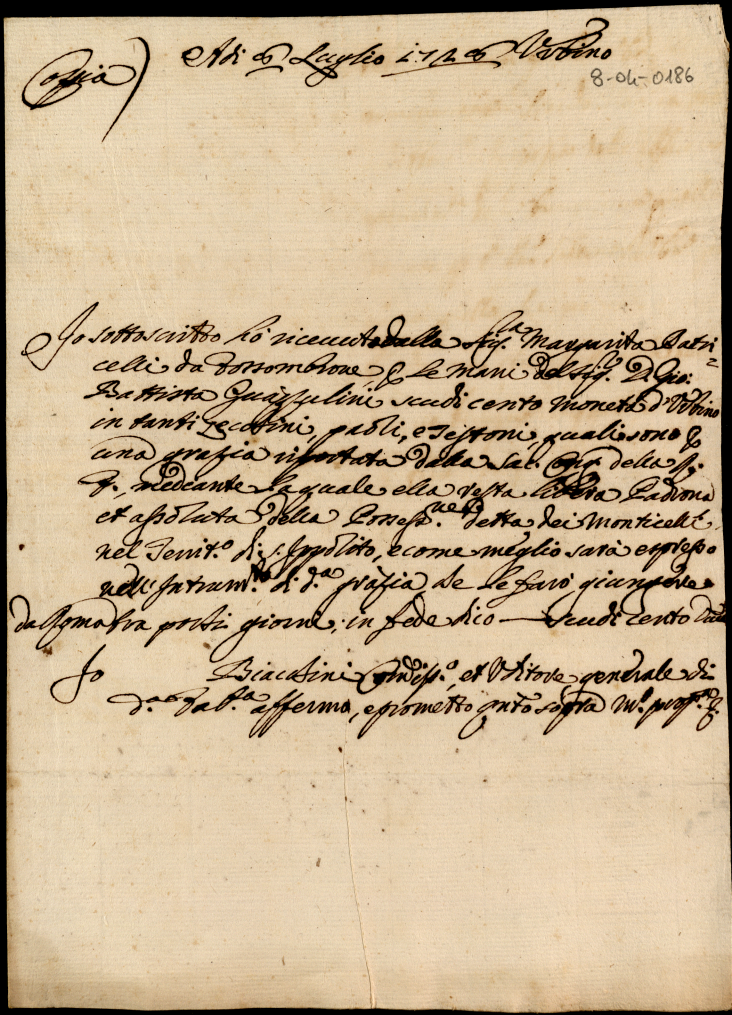 Copia)
Adi 8 Luglio 1728 Urbino
8-04-0186
Io sottoscritto hò riceuuto dalla Sig.ra Margarita Patri=
celli da Fossombrone p le mani del Sig.r D. Gio:
Battista Guazzolini scudi cento moneta d'Urbino
in tanti zecchini, paoli, e Testoni, quali sono p
una grazia riportata dalla Sac. Cong. della S.
F., mediante la quale ella resta libera Padrona
et assoluta della Possess.ne detta dei Monticelli
nel Territ.o di S. Ippolito, e come meglio sarà espresso
nell'Intrum.to di d.a grazia che le farò giungere
da Roma fra pochi giorni, in fede dico — scudi cento
Io Biacatini, et Uditore generale di
d.a Fab.a affermo, e prometto q.nto sopra m.o prop.a